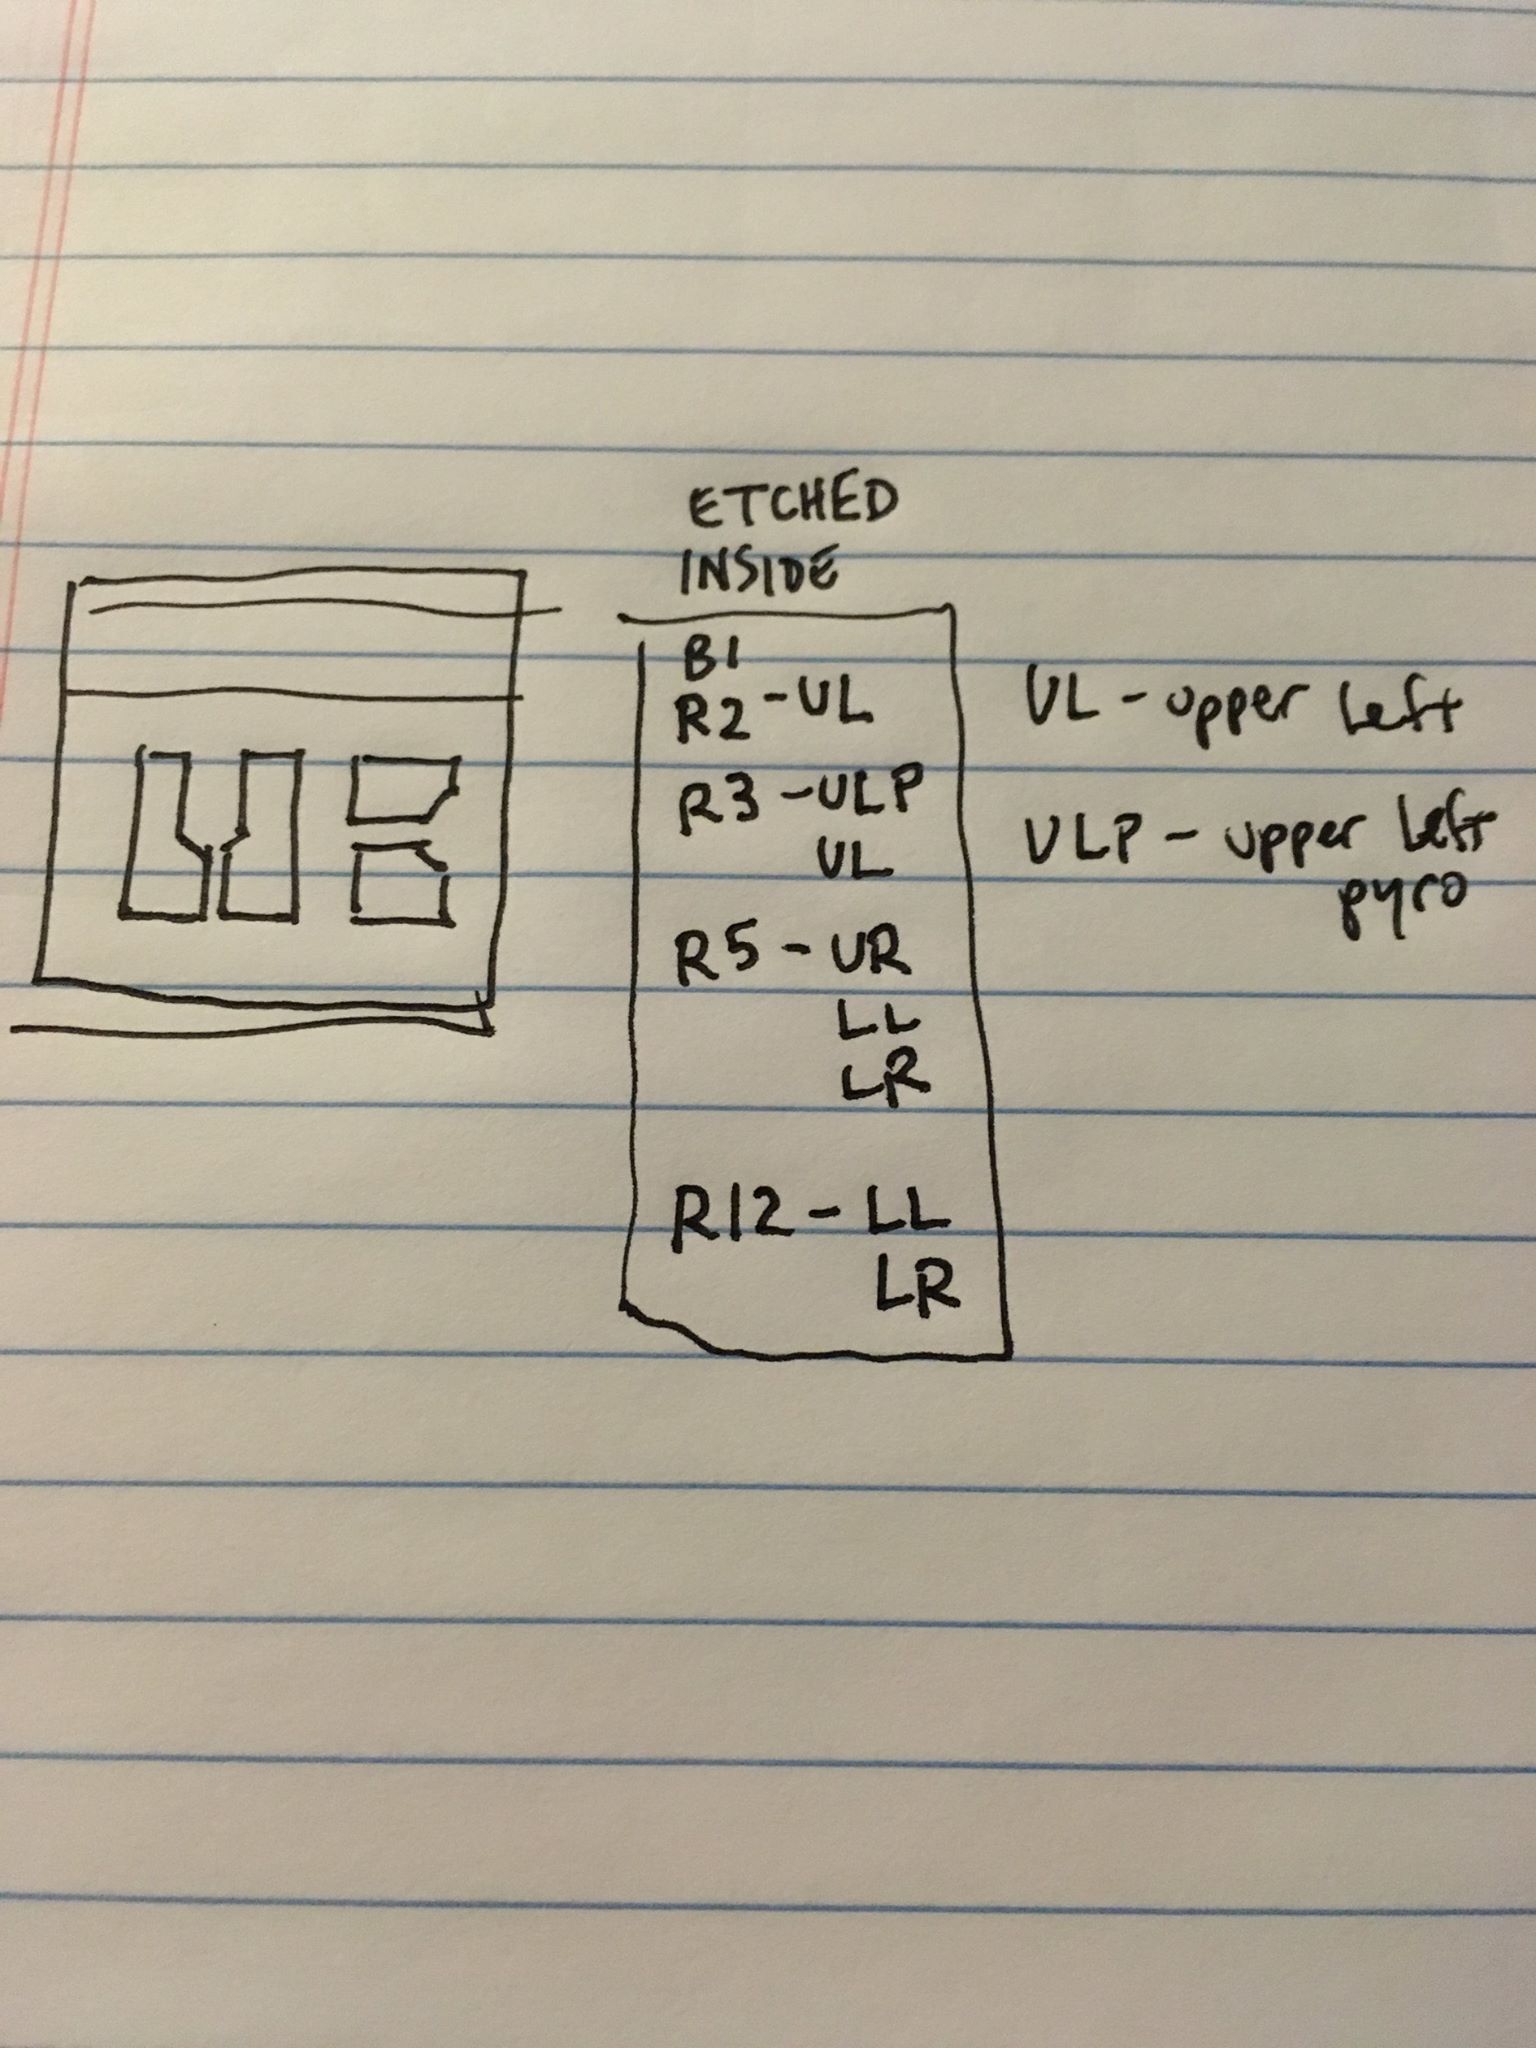 ETCHED
INSIDE
B1
R2 - UL
R3 - ULP
UL
R5 - UR
LL
LR
R12 - LL
LR
UL - upper left
ULP - upper left
pyro